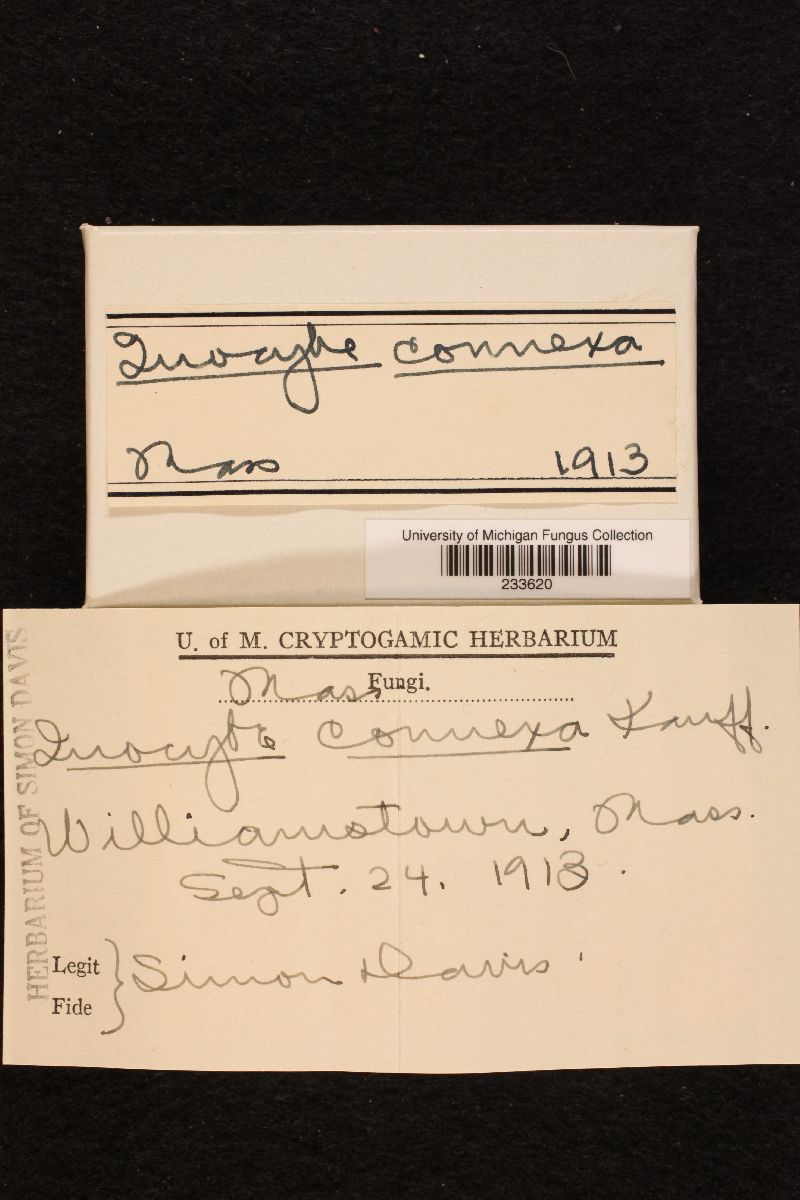 Inocybe connexa
Mass 1913
University of Michigan Fungus Collection
233620
U. of M. CRYPTOGAMIC HERBARIUM
Fungi.
Mass
Inocybe connexa Kauff.
Williamstown, Mass.
Sept. 24. 1913.
Legit
Fide
Simon Davis
HERBARIUM OF SIMON DAVIS